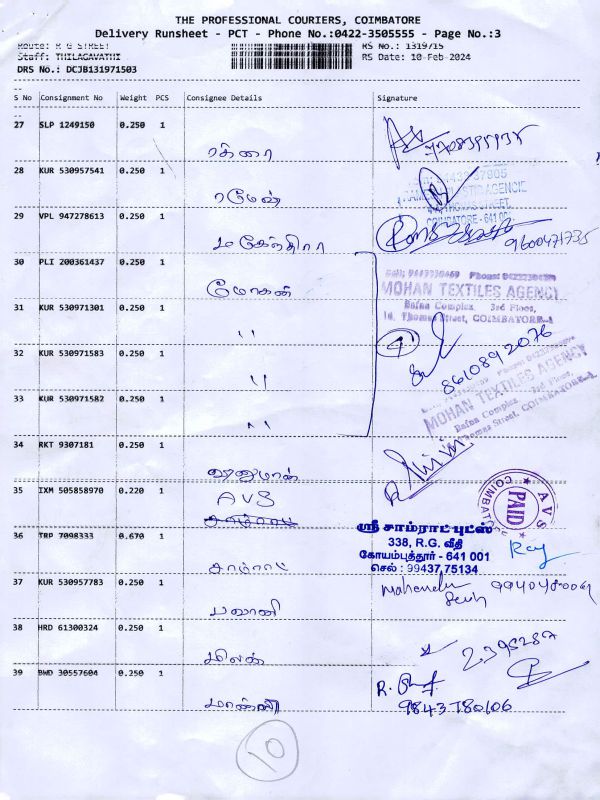 THE PROFESSIONAL COURIERS, COIMBATORE
Delivery Runsheet - PCT - Phone No.:0422-3505555 - Page No.:3
Route: R G STREET
RS No.: 1319715
Staff: THILAGAVATHI
RS Date: 10-Feb-2024
DRS No.: DCJB131971503
S No Consignment No Weight PCS Consignee Details Signature
27 SLP 1249150 0.250 1
28 KUR 530957541 0.250 1
ரமேஷ்
COIMBATORE - 641 001
29 VPL 947278613 0.250 1
மகேந்திரா
9600471735
30 PLI 200361437 0.250 1
மோகன்
MOHAN TEXTILES AGENCY
Bafna Complex, 3rd Floor,
Thomas Street, COIMBATORE-1
31 KUR 530971301 0.250 1
"
32 KUR 530971583 0.250 1
"
4
8610892076
33 KUR 530971582 0.250 1
"
MOHAN TEXTILES AGENCY
Bafna Complex, 3rd Floor,
Thomas Street, COIMBATORE-1
34 RKT 9307181 0.250 1
ஹனுமான்
35 IXM 505858970 0.220 1
AVS
AVS
COIMBATORE
PAID
36 TRP 7098333 0.670 1
சாம்ராட்
ஸ்ரீ சாம்ராட் புட்ஸ்
338, R.G. வீதி
கோயம்புத்தூர் - 641 001
செல் : 99437,75134
Ray
37 KUR 530957783 0.250 1
பவானி
Mahendra
38 HRD 61300324 0.250 1
39 BWD 30557604 0.250 1
9843780106
10